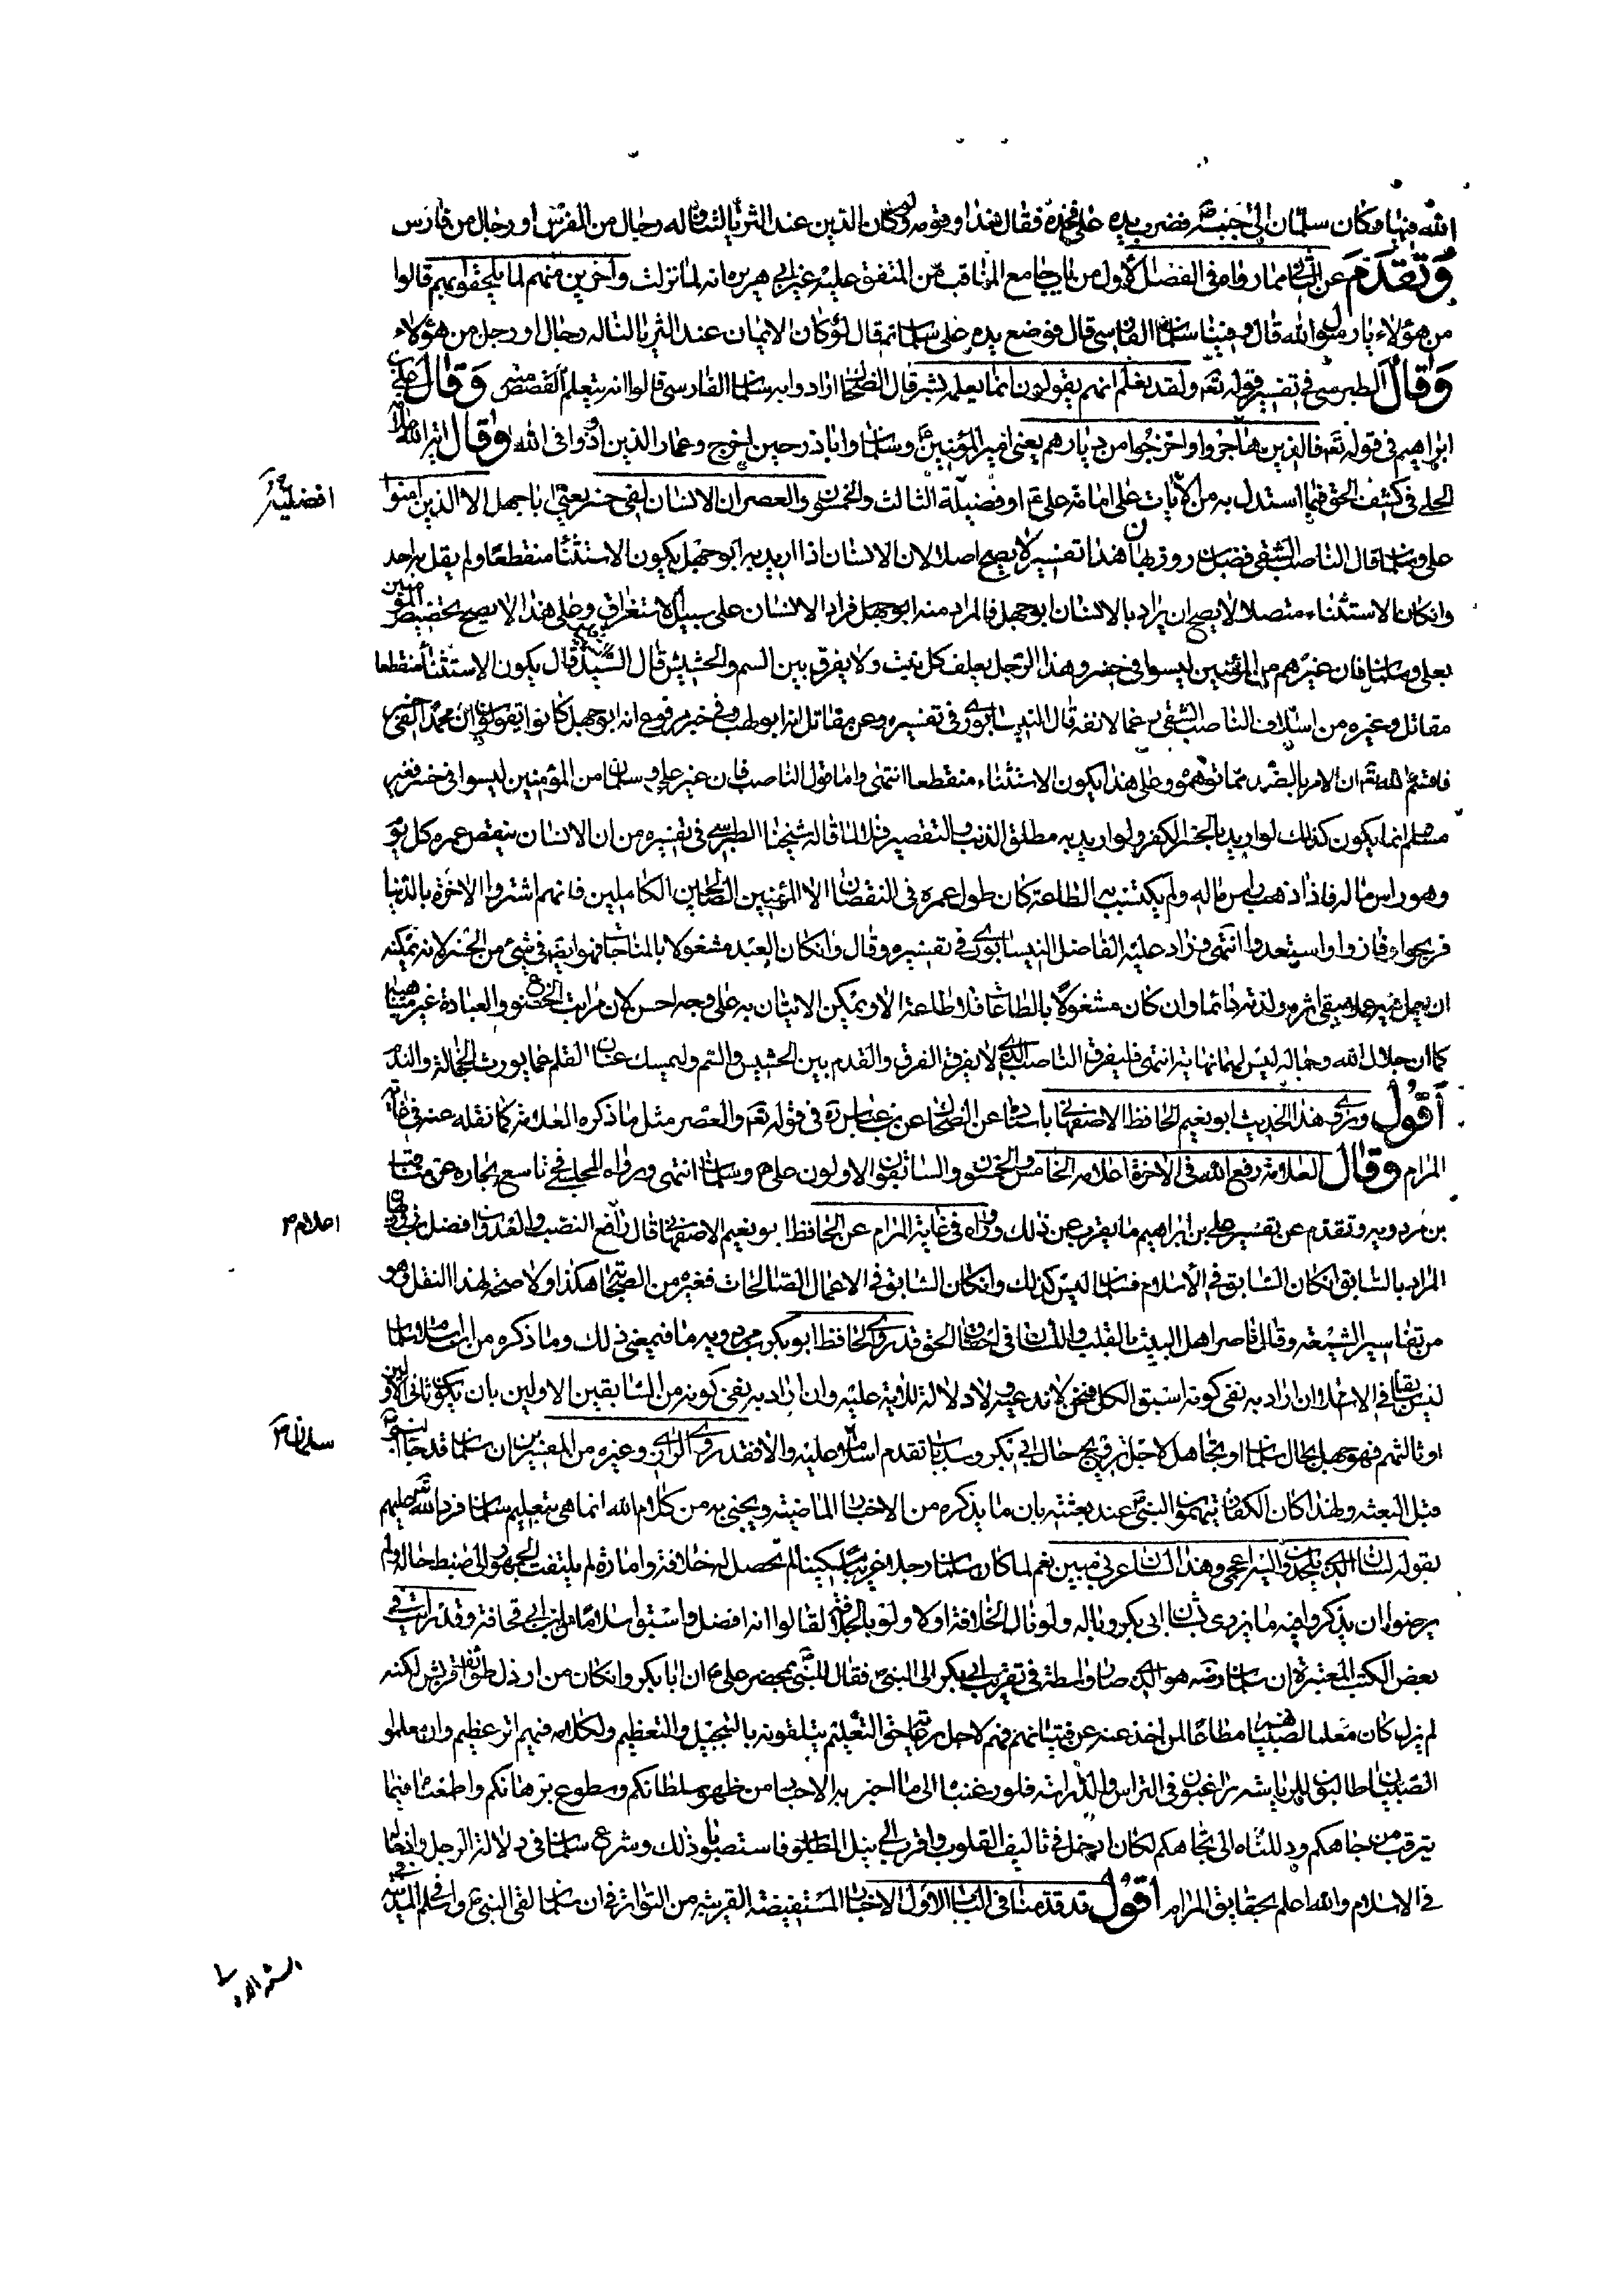 الله فيها وكان سلمان الى جنبه ص فضرب يده على فخذه فقال هذا وقومه ولو كان الدين عند الثريا لتناوله رجال من الفرس او رجال من فارس
وتقدم عن التاج مما رواه في الفصل الاول من باب جامع المناقب من المتفق عليه عن ابي هريره انه لما نزلت واخرين منهم لما يلحقوا بهم قالوا
من هؤلاء يا رسول الله قال وفينا سلمان الفارسى قال فوضع يده على سلمان ثم قال لو كان الايمان عند الثريا لناله رجال او رجل من هؤلاء
وقال الطبرسى في تفسير قوله تعه ولقد نعلم انهم يقولون انما يعلمه بشر قال الضحاك ارادوا به سلمان الفارسى قالوا انه يتعلم القصص منه وقال علي بن
ابراهيم في قوله تعه فالذين هاجروا واخرجوا من ديارهم يعنى امير المؤمنين ع وسلمان وابا ذر حين اخرج وعمار الذين اوذوا في الله وقال اية الله العلامة
الحلي في كشف الحق فيما استدل به من الايات على امامة علي ع او فضيلة الثالث والخمسون والعصر ان الانسان لفي خسر يعنى ابا جهل الا الذين امنوا
افضليته
علي وسلمان قال الناصب الشقى فضل بن روزبهان هذا تفسير لا يصح اصلا لان الانسان اذا اريد به ابو جهل يكون الاستثناء منقطعا ولم يقل به احد
وان كان الاستثناء متصلا لا يصح ان يراد بالانسان ابو جهل فالمراد منه ابو جهل فراد الانسان على سبيل الاستغراق وعلى هذا لا يصح تخصيص المؤمنين
بعلي وسلمان فان غيرهم من المؤمنين ليسوا في خسر وهذا الرجل يعلف كل نبت ولا يفرق بين السم والحشيش قال السيد قال بكون الاستثناء منقطعا
مقاتل وغيره من اسلاف الناصب الشقى رغما لانفه قال النيسابورى في تفسيره وعن مقاتل انه ابو لهب وفي خبر مرفوع انه ابو جهل كانوا يقولون ان محمدا لفي خسر
فاقسم الله تعه ان الامر بالضد مما توهموه وعلى هذا يكون الاستثناء منقطعا انتهى واما قول الناصب فان غير علي وسلمان من المؤمنين ليسوا في خسر فغير
مسلم انما يكون كذلك لو اريد بالخسر الكفر ولو اريد به مطلق الذنب والتقصير فلا لما قاله شيخنا الطبرسى في تفسيره من ان الانسان ينقص عمره كل يوم
وهو راس ماله فاذا ذهب راس ماله ولم يكتسب به الطاعة كان طول عمره في النقصان الا المؤمنين الصالحين الكاملين فانهم اشتروا الاخرة بالدنيا
فربحوا وفازوا واستعدوا انتهى وزاد عليه الفاضل النيسابورى في تفسيره وقال وان كان العبد مشغولا بالمباحات فهو ايضه في شئ من الخسر لانه يمكنه
ان يعمل فيه عملا يبقى اثره ولذته دائما وان كان مشغولا بالطاعات فلا طاعة الا ويمكن الاتيان به على وجه احسن لان مراتب الخضوع والعبادة غير متناهية
كما ان جلال الله وجماله ليس لهما نهاية انتهى فليفرق الناصب الذى لا يفرق الفرق والقدم بين الحشيش والسم وليمسك عنان القلم عما يورث الخجالة والندم
أقول وروى هذا الحديث ابو نعيم الحافظ الاصفهانى باسناده عن الضحاك عن ابن عباس ره في قوله تعه والعصر مثل ما ذكره العلامة كما نقله عنه في غاية
المرام وقال العلامة رفع الله في الاخرة اعلامه الخامس والخمسون والسابقون الاولون علي ع وسلمان انتهى ورواه المجلسى في تاسع بحاره عن مناقب
بن مردويه وتقدم عن تفسير علي بن ابراهيم ما يقرب عن ذلك ورواه في غاية المرام عن الحافظ ابو نعيم الاصفهانى قال رافع النصب والعدوان فضل بن روزبهان
اعلام م
المراد بالسابق ان كان السابق في الاسلام فسلمان ليس كذلك وان كان السابق في الاعمال الصالحات فغيره من الصحابة هكذا ولا صحة لهذا النقل وهو
من تفاسير الشيعة وقال ناصر اهل البيت بالقلب واللسان في احقاق الحق قد روى الحافظ ابو بكر بن مردويه ما فيه معنى ذلك وما ذكره من ان سلمان
ليس سابقا في الاسلام ان اراد به نفى كونه اسبق الكل فنحن لا ندعيه ولا دلالة للاية عليه وان اراد به نفى كونه من السابقين الاولين بان يكون ثانى الاولين
او ثالثهم فهو جهل بحال سلمان او تجاهل لاجل ترويج حال ابي بكر وسد باب تقدم اسلام سلمان عليه والا فقد روى الرازى وغيره من المفسرين ان سلمان قد جاء النبي ص
سلمان م
قبل البعثه ولهذا كان الكفار يتهمون النبى ص عند بعثته بان ما يذكره من الاخبار الماضية ويجئ به من كلام الله انما هي بتعليم سلمان فرد الله تعه عليهم
بقوله لسان الذى يلحدون اليه اعجمى وهذا لسان عربى مبين نعم لما كان سلمان رجلا غريبا مسكينا لم تحصل له خلافة وامارة لم يلتفت الجمهور الى ضبط حاله ولم
يرضوا ان يذكروا فيه ما يزرى بشان ابى بكر وباله ولو نال الخلافة اولا ولو بالجملة لقالوا انه افضل واسبق اسلاما من ابن ابي قحافة وقد رايت في
بعض الكتب المعتبرة ان سلمان رضه هو الذى صار واسطة في تقريب ابي بكر الى النبى ص فقال للنبى بمحضر علي ع ان ابا بكر وان كان من ارذل طوائف قريش لكنه
لم يزل كان معلما لصبيانهم مطاعا لمن اخذ عنه من فتيانهم فهم لاجل مرتبته وحق التعليم يتلقونه بالتبجيل والتعظيم ولكلامه فيهم اثر عظيم وان معلموا
الصبيان طالبون للرياسة راغبون في التراس والدراسة فلو رغبناه الى ما اخبر به الاحبار من ظهور سلطانكم وسطوع برهانكم واطمعناه فيما
يترقب من جاهكم ودللناه الى تجاهكم لكان ادخل في تاليف القلوب واقرب الى نيل المطلوب فاستصوبا ذلك وشرع سلمان في دلالة الرجل وادخاله
في الاسلام والله اعلم بحقايق المرام أقول قد قدمنا في الباب الاول الاخبار المستفيضة القريبة من التواتر في ان سلمان لقى النبى ع واسلم في المدينة